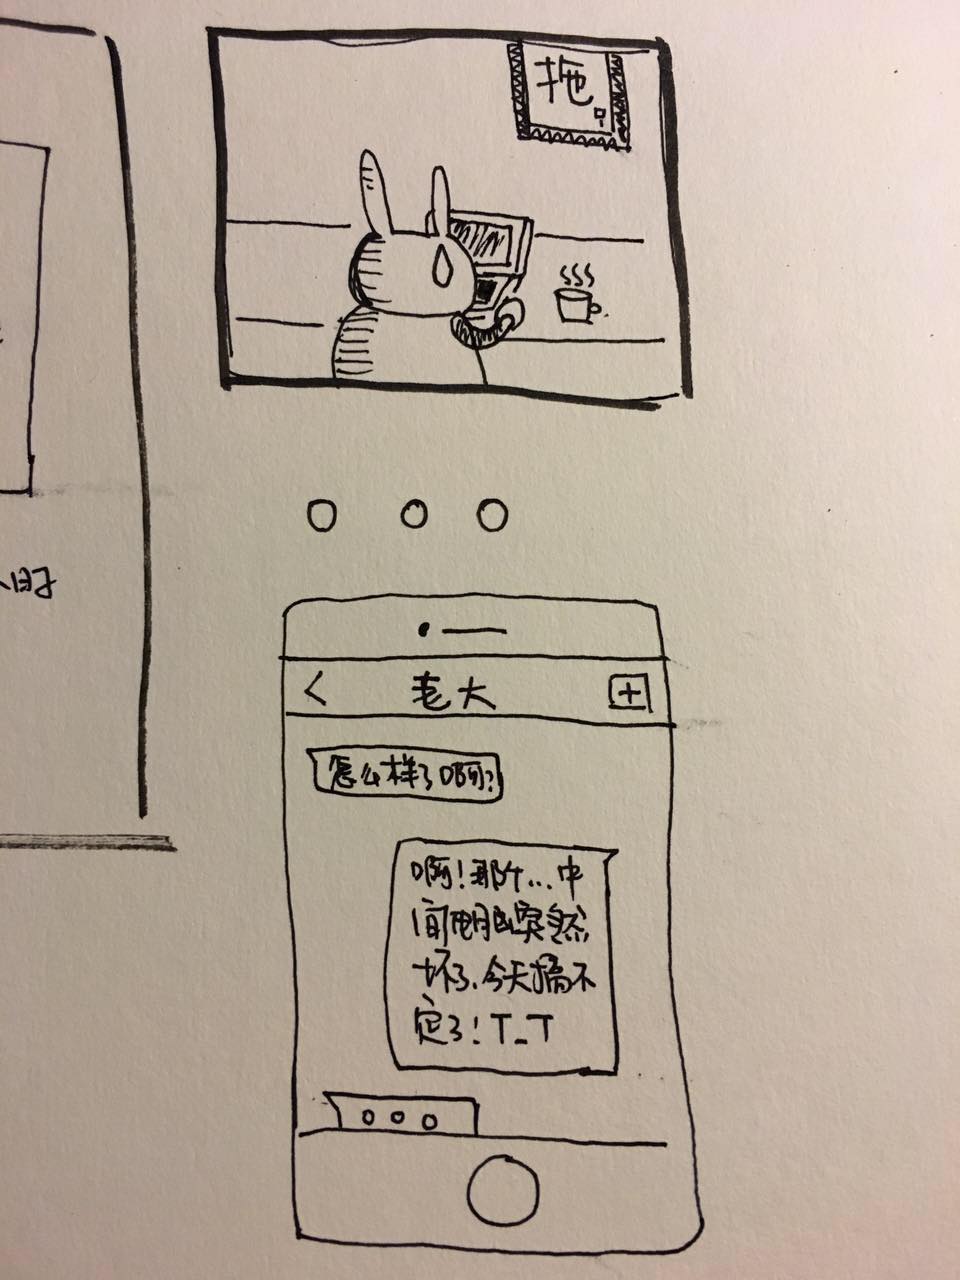 拖
时
老大
怎么样了啊?
啊!那个...中
间电脑突然
坏了.今天搞不
定了!T_T